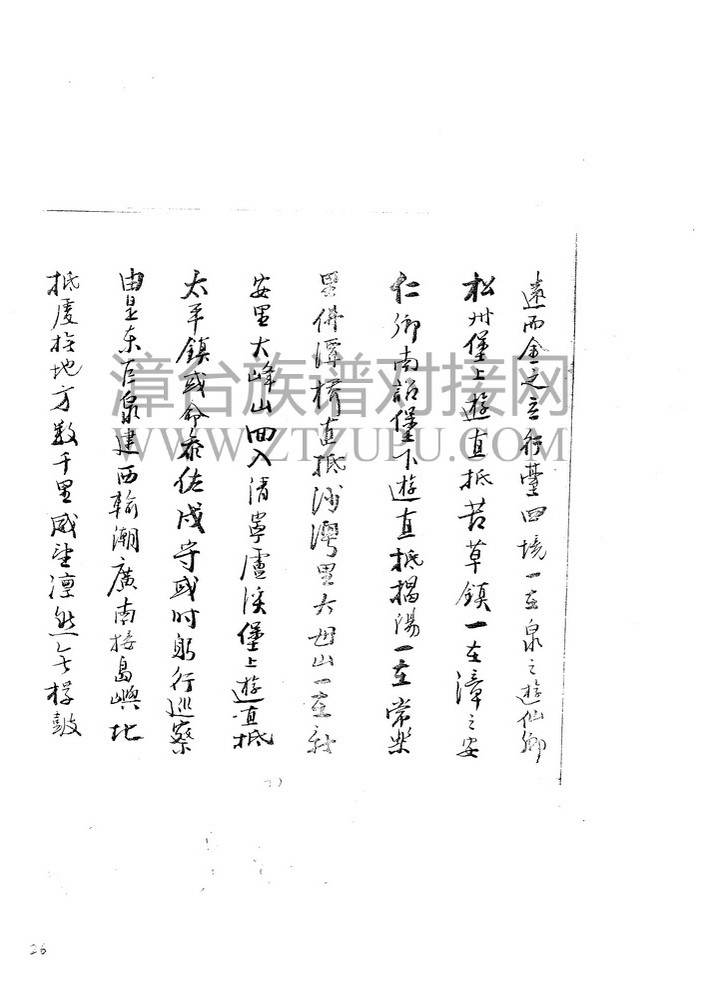 遠而金之立行臺四境一在泉之遊仙鄉
松州堡上遊直抵苦草鎮一在漳之安
仁鄉南詔堡下遊直抵揭陽一在常樂
里佛潭橋直抵沙灣里太母山一在新
安里大峰山回入清寧盧溪堡上遊直抵
太平鎮或命參佐戍守或時躬行巡察
由是東距泉建西翰潮廣南接島嶼北
抵虔撫地方數千里威望凜然無桴鼓
漳台族谱对接网
WWW.ZTZUPU.COM
26